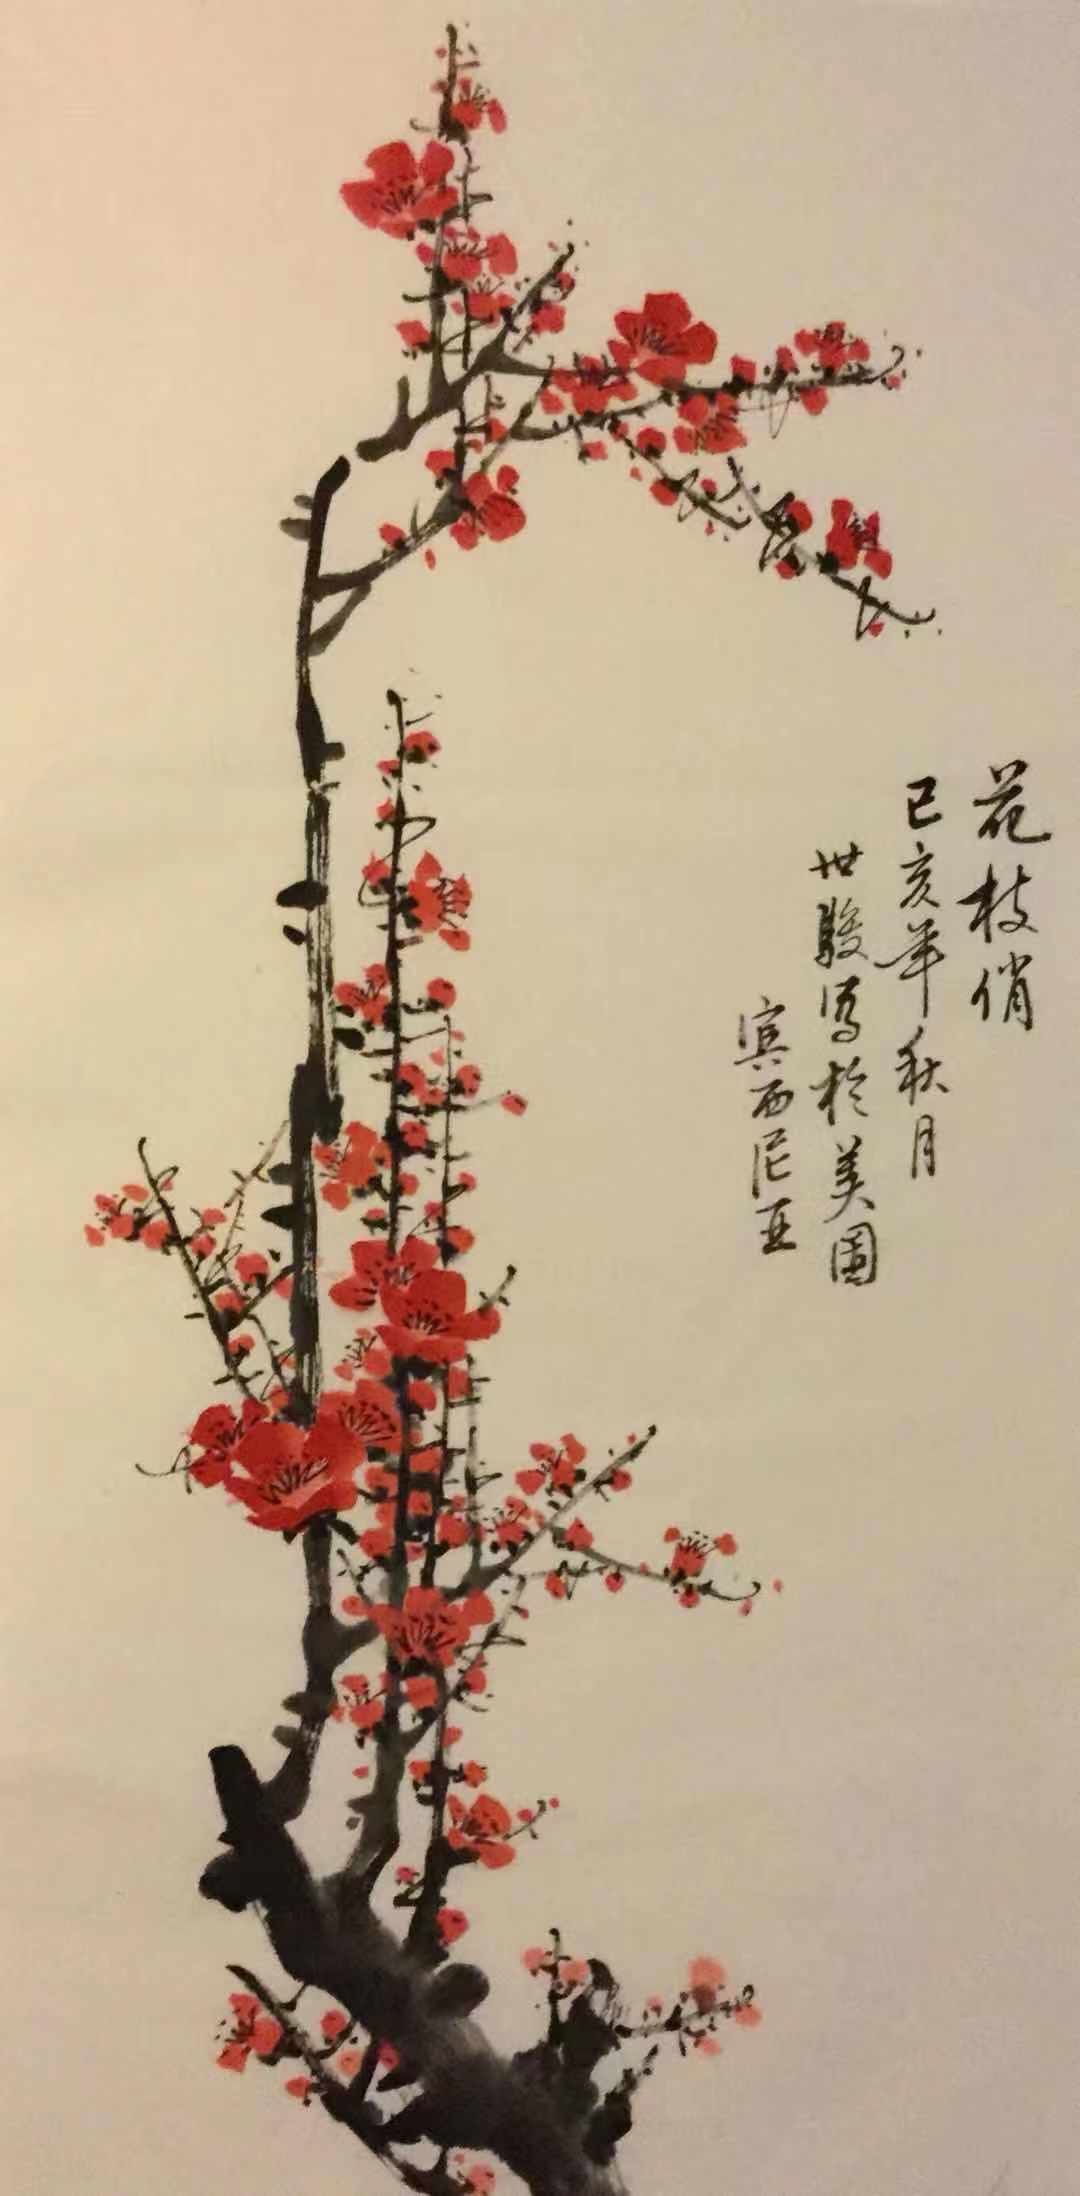 花枝俏
己亥年秋月
世骏写於美国
宾西尼亚